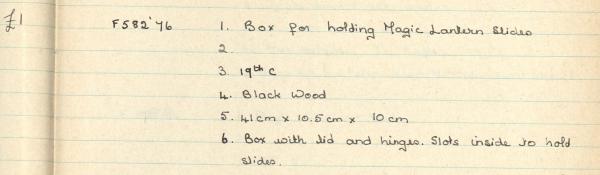 £1 F582'76 1. Box for holding Magic Lantern Slides
2.
3. 19th C
4. Black Wood
5. 41cm x 10.5cm x 10cm
6. Box with lid and hinges. Slots inside to hold
slides.